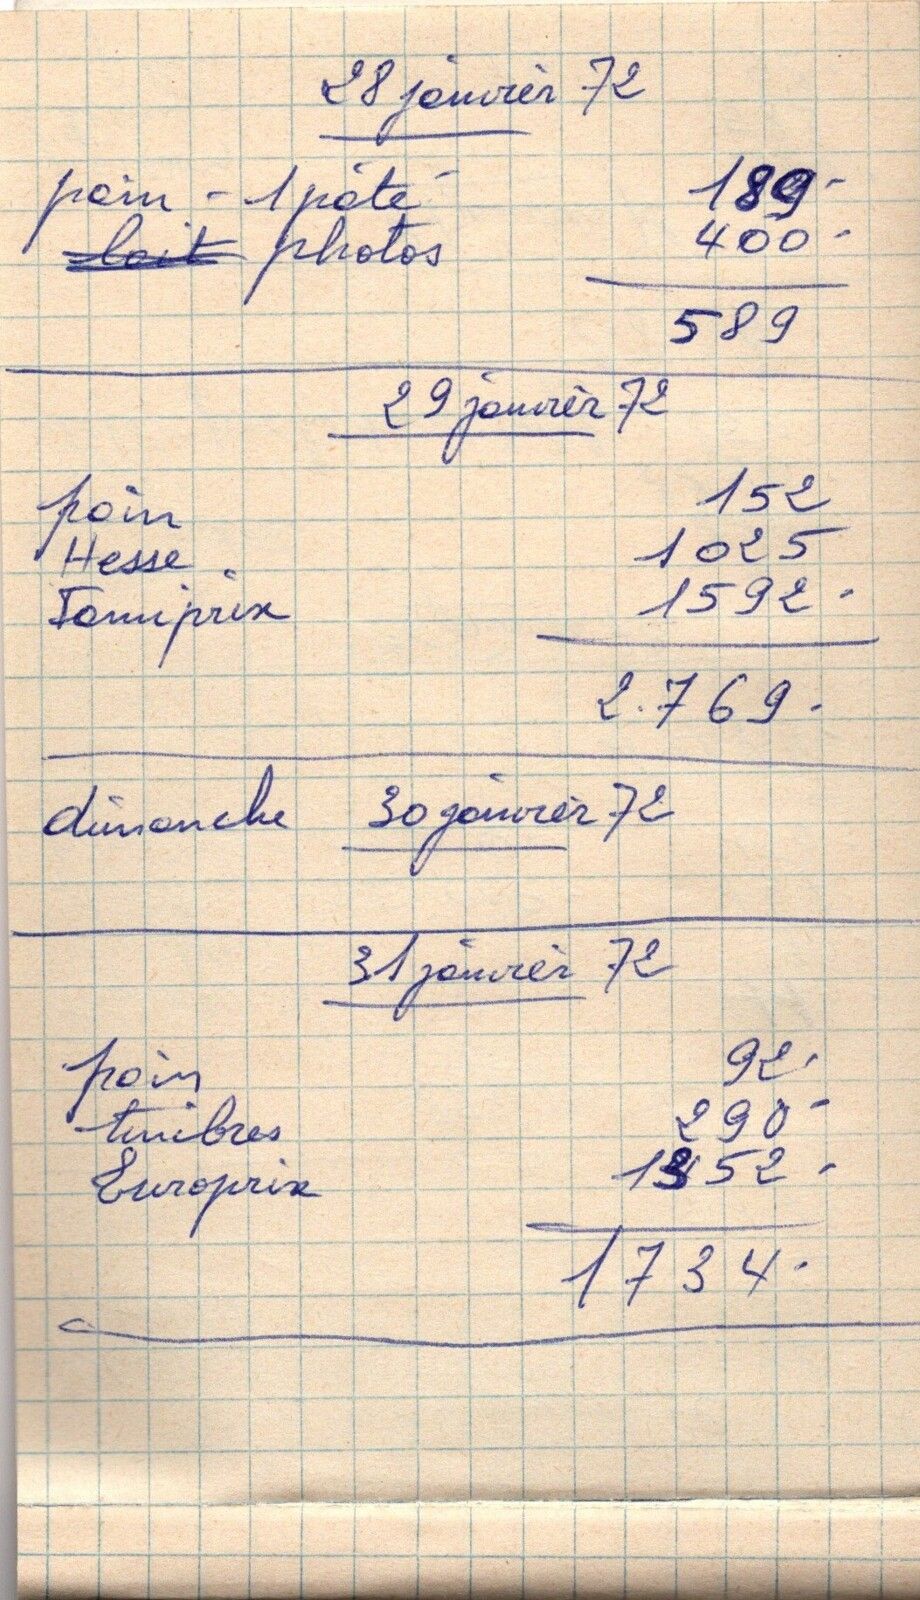 28 janvier 72
pain - 1 pâté 189-
lait photos 400-
589
29 janvier 72
pain 152
Hesse 1025
Famiprix 1592.
2.769.
dimanche 30 janvier 72
31 janvier 72
pain 92.
timbres 290-
Europrix 1352.
1734.